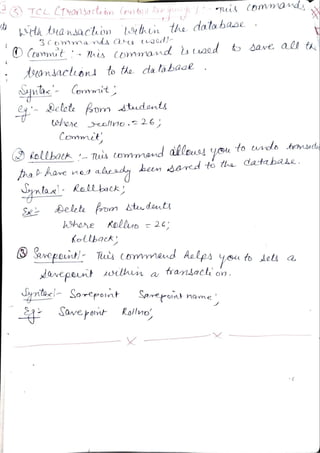 ③ TCL (Transaction Control Language) :- This commands
with transaction within the database.
3 commands are used:-
① Commit :- This command is used to save all the
transactions to the database.
Syntax:- Commit;
Eg:- Delete from students
where rollno. = 26;
Commit;
② Rollback :- This command allows you to undo
that have not already been saved to the database.
Syntax:- Rollback;
Ex:- Delete from students
where Rollno = 26;
Rollback;
③ Savepoint:- This command helps you to sets a
savepoint within a transaction.
Syntax:- Savepoint Savepoint name;
Eg:- Savepoint Rollno;